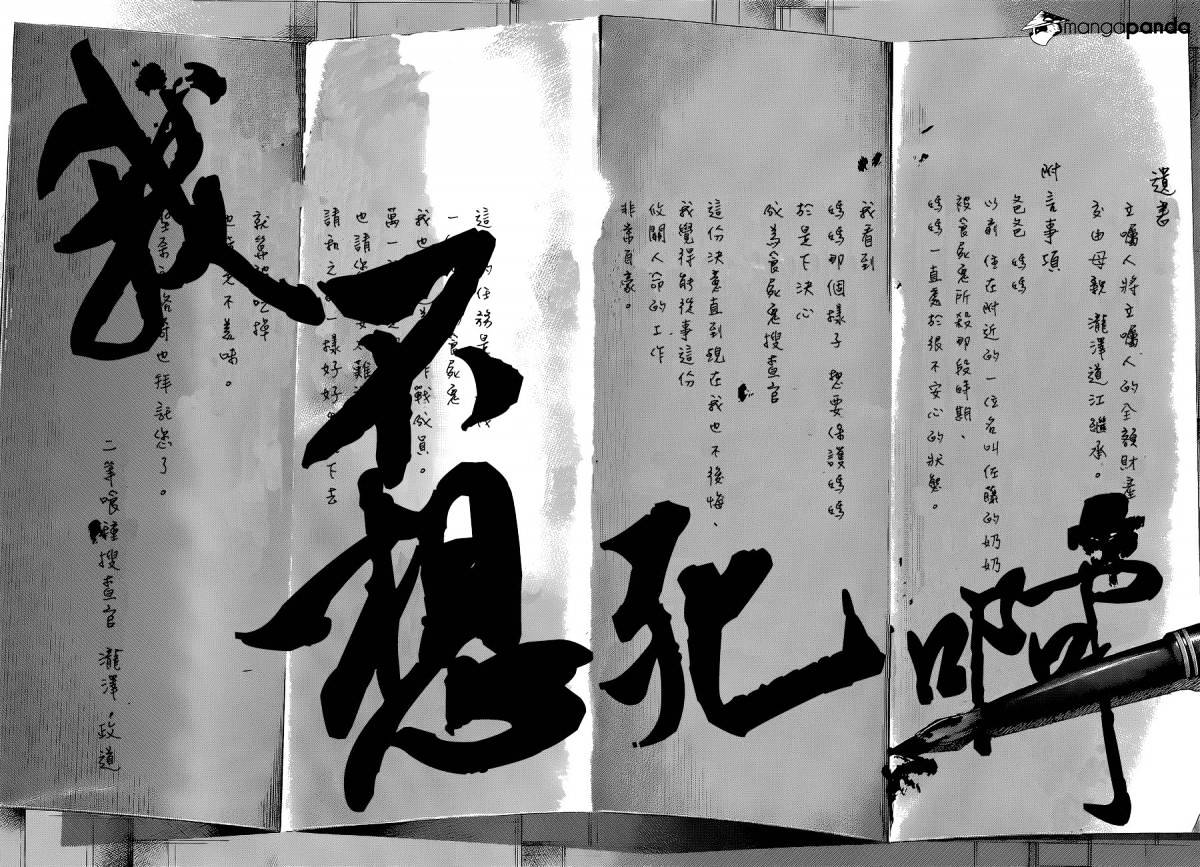 mangapanda
遺書
立囑人將立囑人的全額財產
交由母親 瀧澤道江繼承。
附言事項
爸爸 媽媽
以前住在附近的一位名叫佐藤的奶奶
被食屍鬼所殺那段時期、
媽媽一直處於很不安心的狀態。
我看到
媽媽那個樣子 想要保護媽媽
於是下決心
成為食屍鬼搜查官
這份決意直到現在我也不後悔、
我覺得能從事這份
攸關人命的工作
非常自豪。
這
的任務是
一
食屍鬼
我也
作戰成員。
萬一
也請
難
請和之
一樣好好
下去
就算被吃掉
也
不美味。
也拜託您了。
二等喰種搜查官 瀧澤 政道
我不想死啊